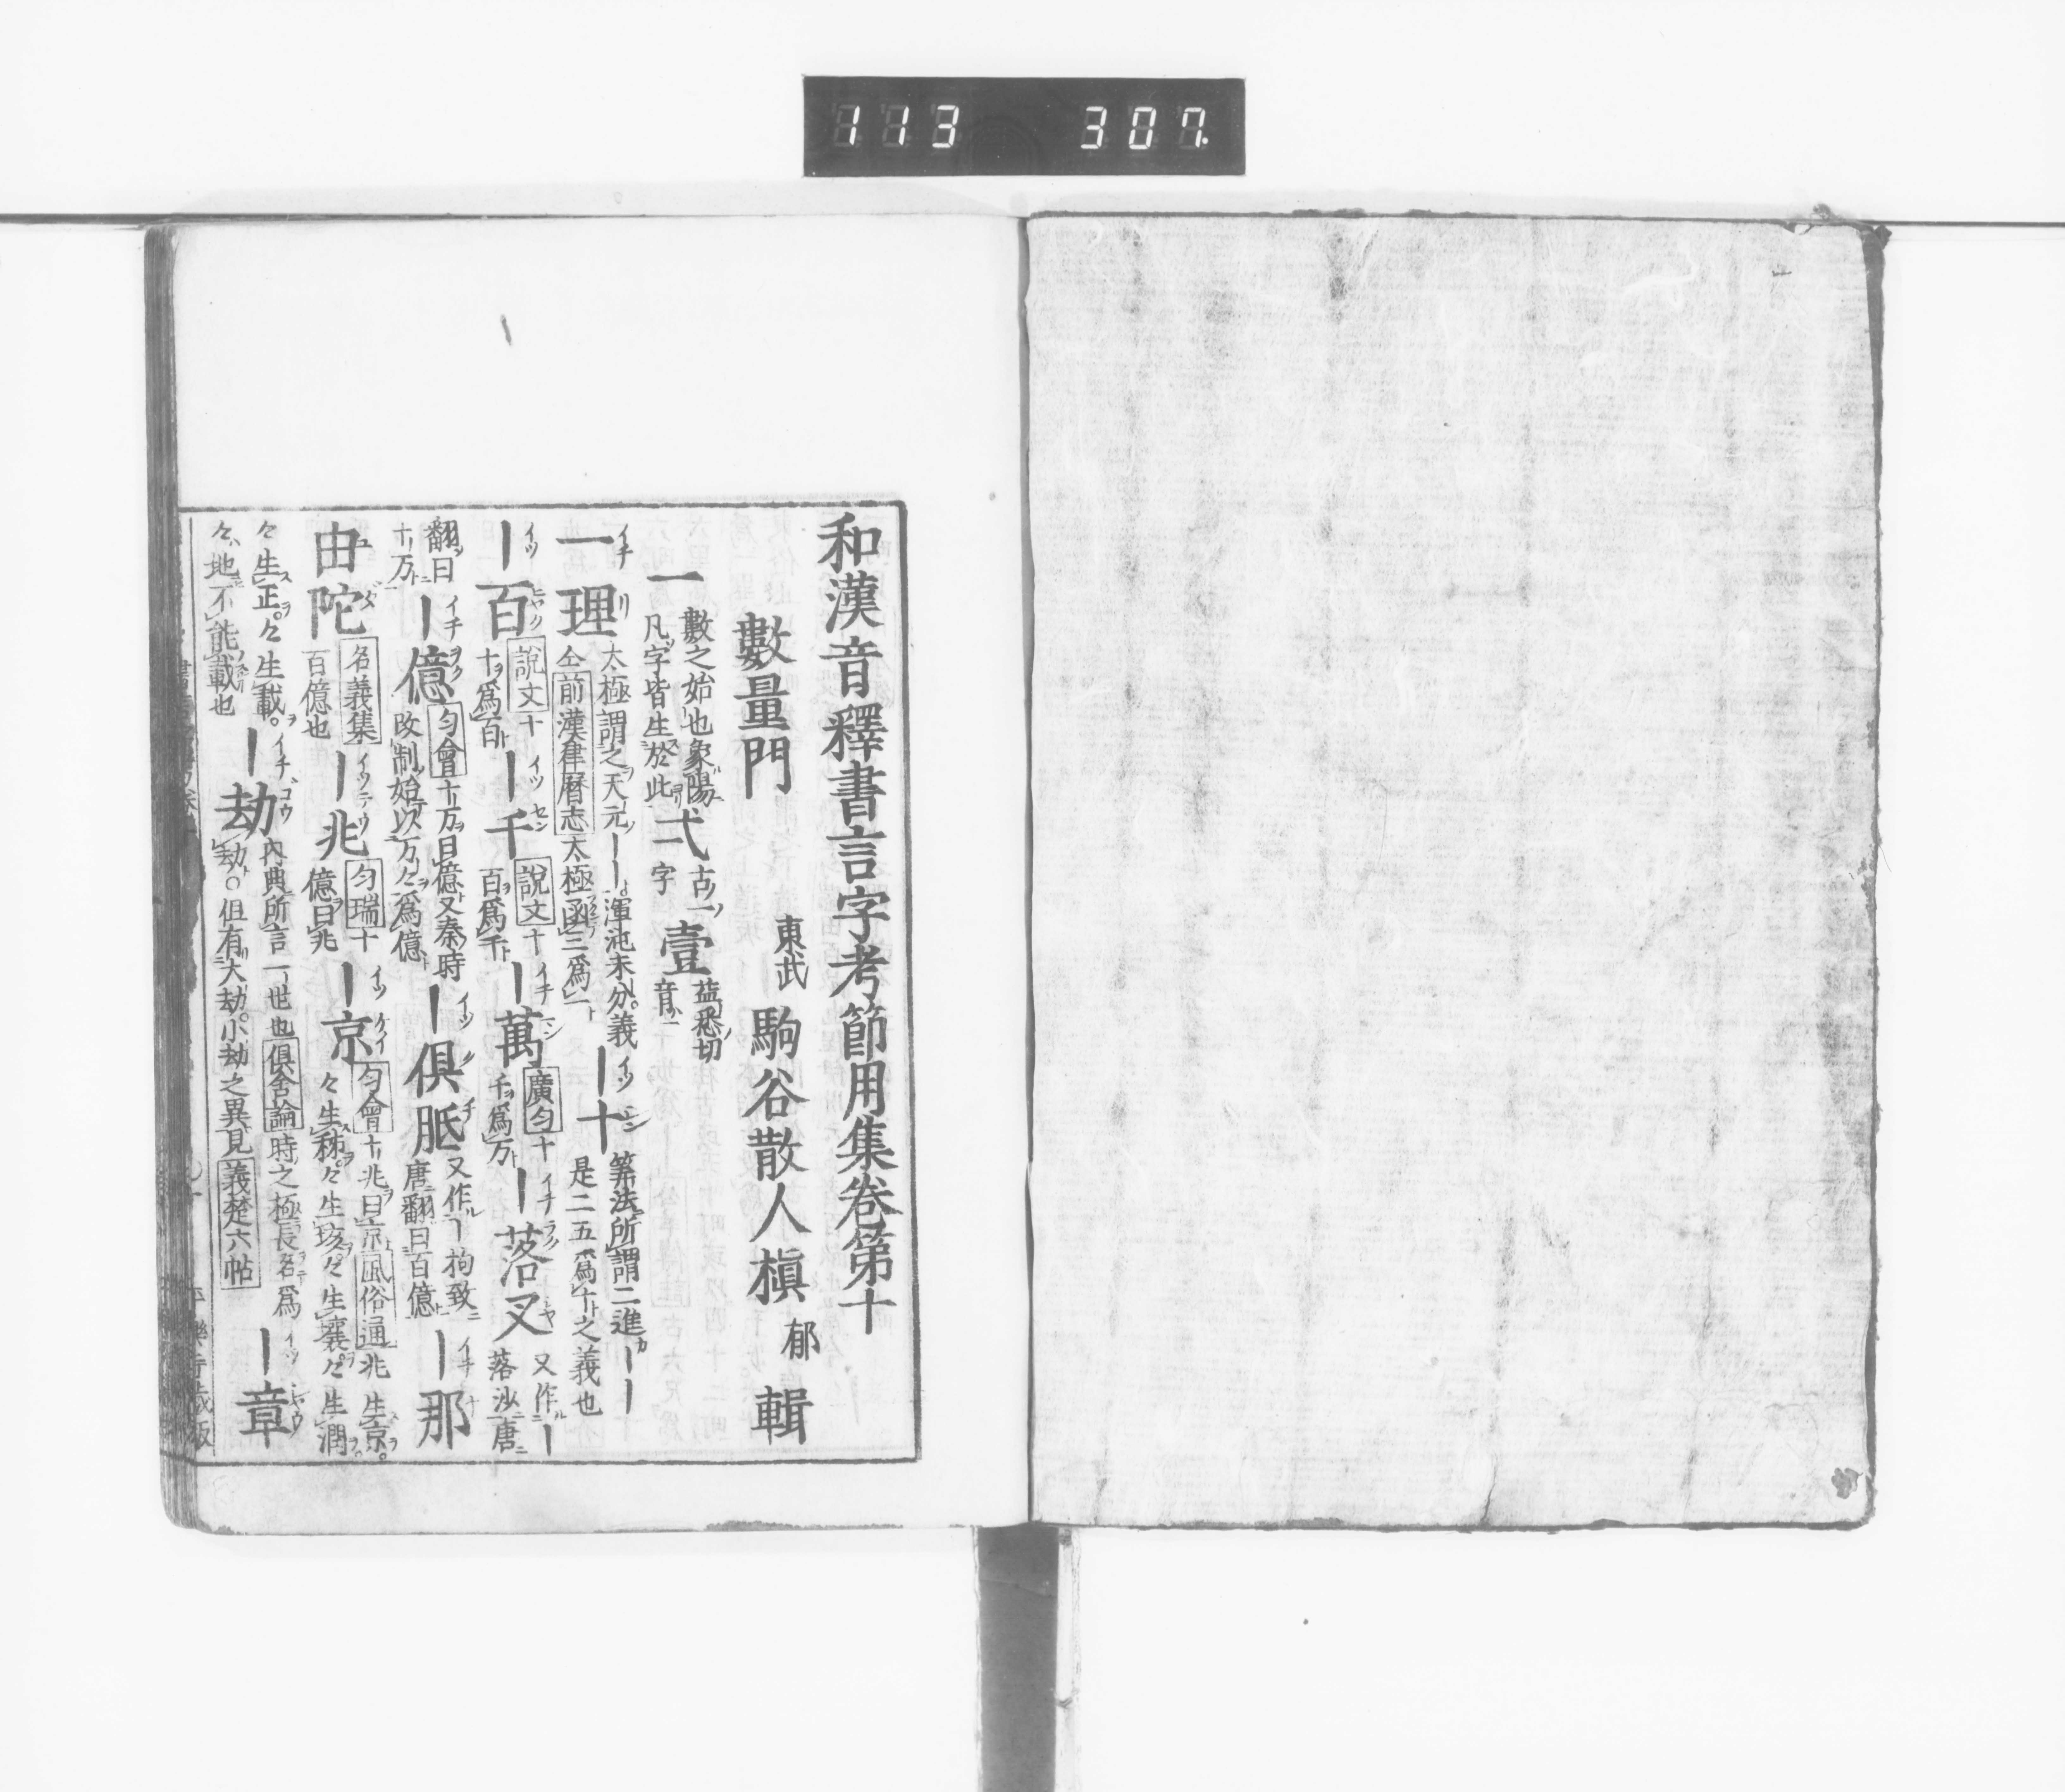 113 307.
和漢音釋書言字考節用集卷第十
東武 駒谷散人槇 郁 輯
數量門
一 數之始也象陽凡字皆生於此 弌 古一字 壹 益悉切音
一理 太極謂之天元ーー渾沌未分義仝前漢律曆志太極凾三爲一 ー十 筭法所謂二進ーー是二五爲十之義也
ー百 說文十十爲百 ー千 說文十百爲千 ー萬 廣匀十千爲万 ー落叉 又作ー落沙唐
翻曰十万 ー億 匀會十万曰億又秦時改制始以万々爲億 ー俱胝 又作ー拘致唐翻曰百億 ー那
由陀 名義集百億也 ー兆 匀瑞十億曰兆 ー京 匀會十兆曰京風俗通兆生京。々生秭。々生垓。々生壤。々生澗。
々生正。々生載。々地不能載也 ー劫 內典所言一世也俱舍論時之極長名爲劫。但有大劫。小劫之異見義楚六帖 ー章